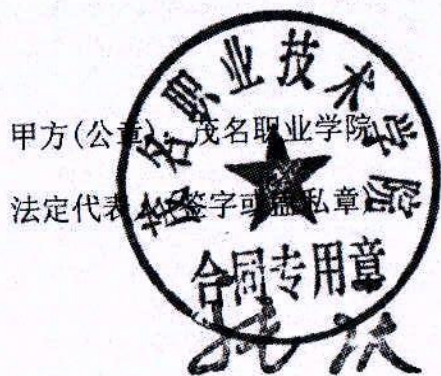 甲方(公章)：茂名职业学院
法定代表人(签字或盖私章)
茂名职业技术学院
合同专用章